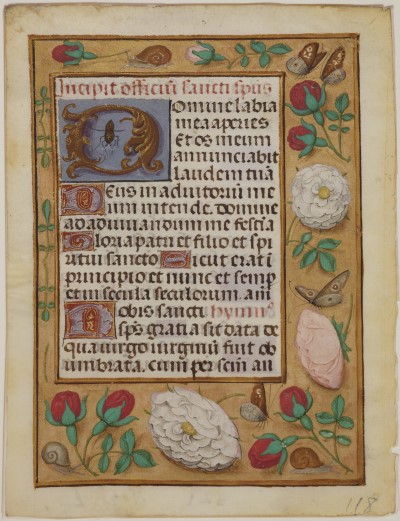 Incipit officiũ sancti spũs
Domine labia
mea aperies
Et os meum
annunciabit
laudem tuã
Deus in adiutoriũ me
um intende. domine
ad adiuvandum me festia
Gloria patri et filio et spi
ritui sancto Sicut erat ĩ
principio et nunc et semp
et in secula seculorum. am̃
Nobis sancti hymn
sp̃s gratia sit data de
qua virgo virginũ fuit ob
umbrata. cum per scm̃ an
118